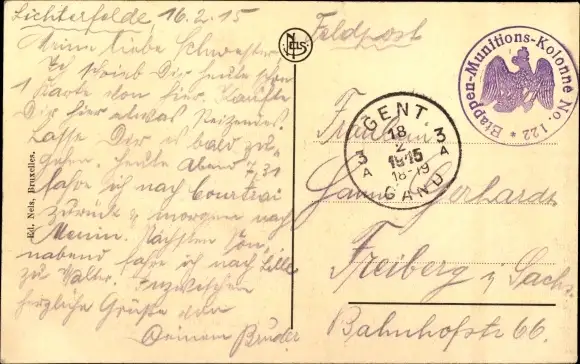 Lichterfelde 16.2.15
Meine liebe Schwester
Ich schrieb Dir heute schon
1 Karte von hier. Kaufte
Dir hier etwas Reizendes.
Lasse Dir es bald zu-
gehen. Heute Abend 7,31
fahre ich nach Courtrai
zurück u. morgen nach
Menin. Nächsten Son-
nabend fahre ich nach Lille
zu Walter. Inzwischen
herzliche Grüße von
Deinem Bruder
Ed. Nels, Bruxelles.
NELS
Feldpost
Etappen-Munitions-Kolonne No. 122 *
GENT.
18
2
1915
18-19
GAND
3 A
3 A
Fräulein
Gerhardt
Freiberg i/ Sachs.
Bahnhofstr 66.